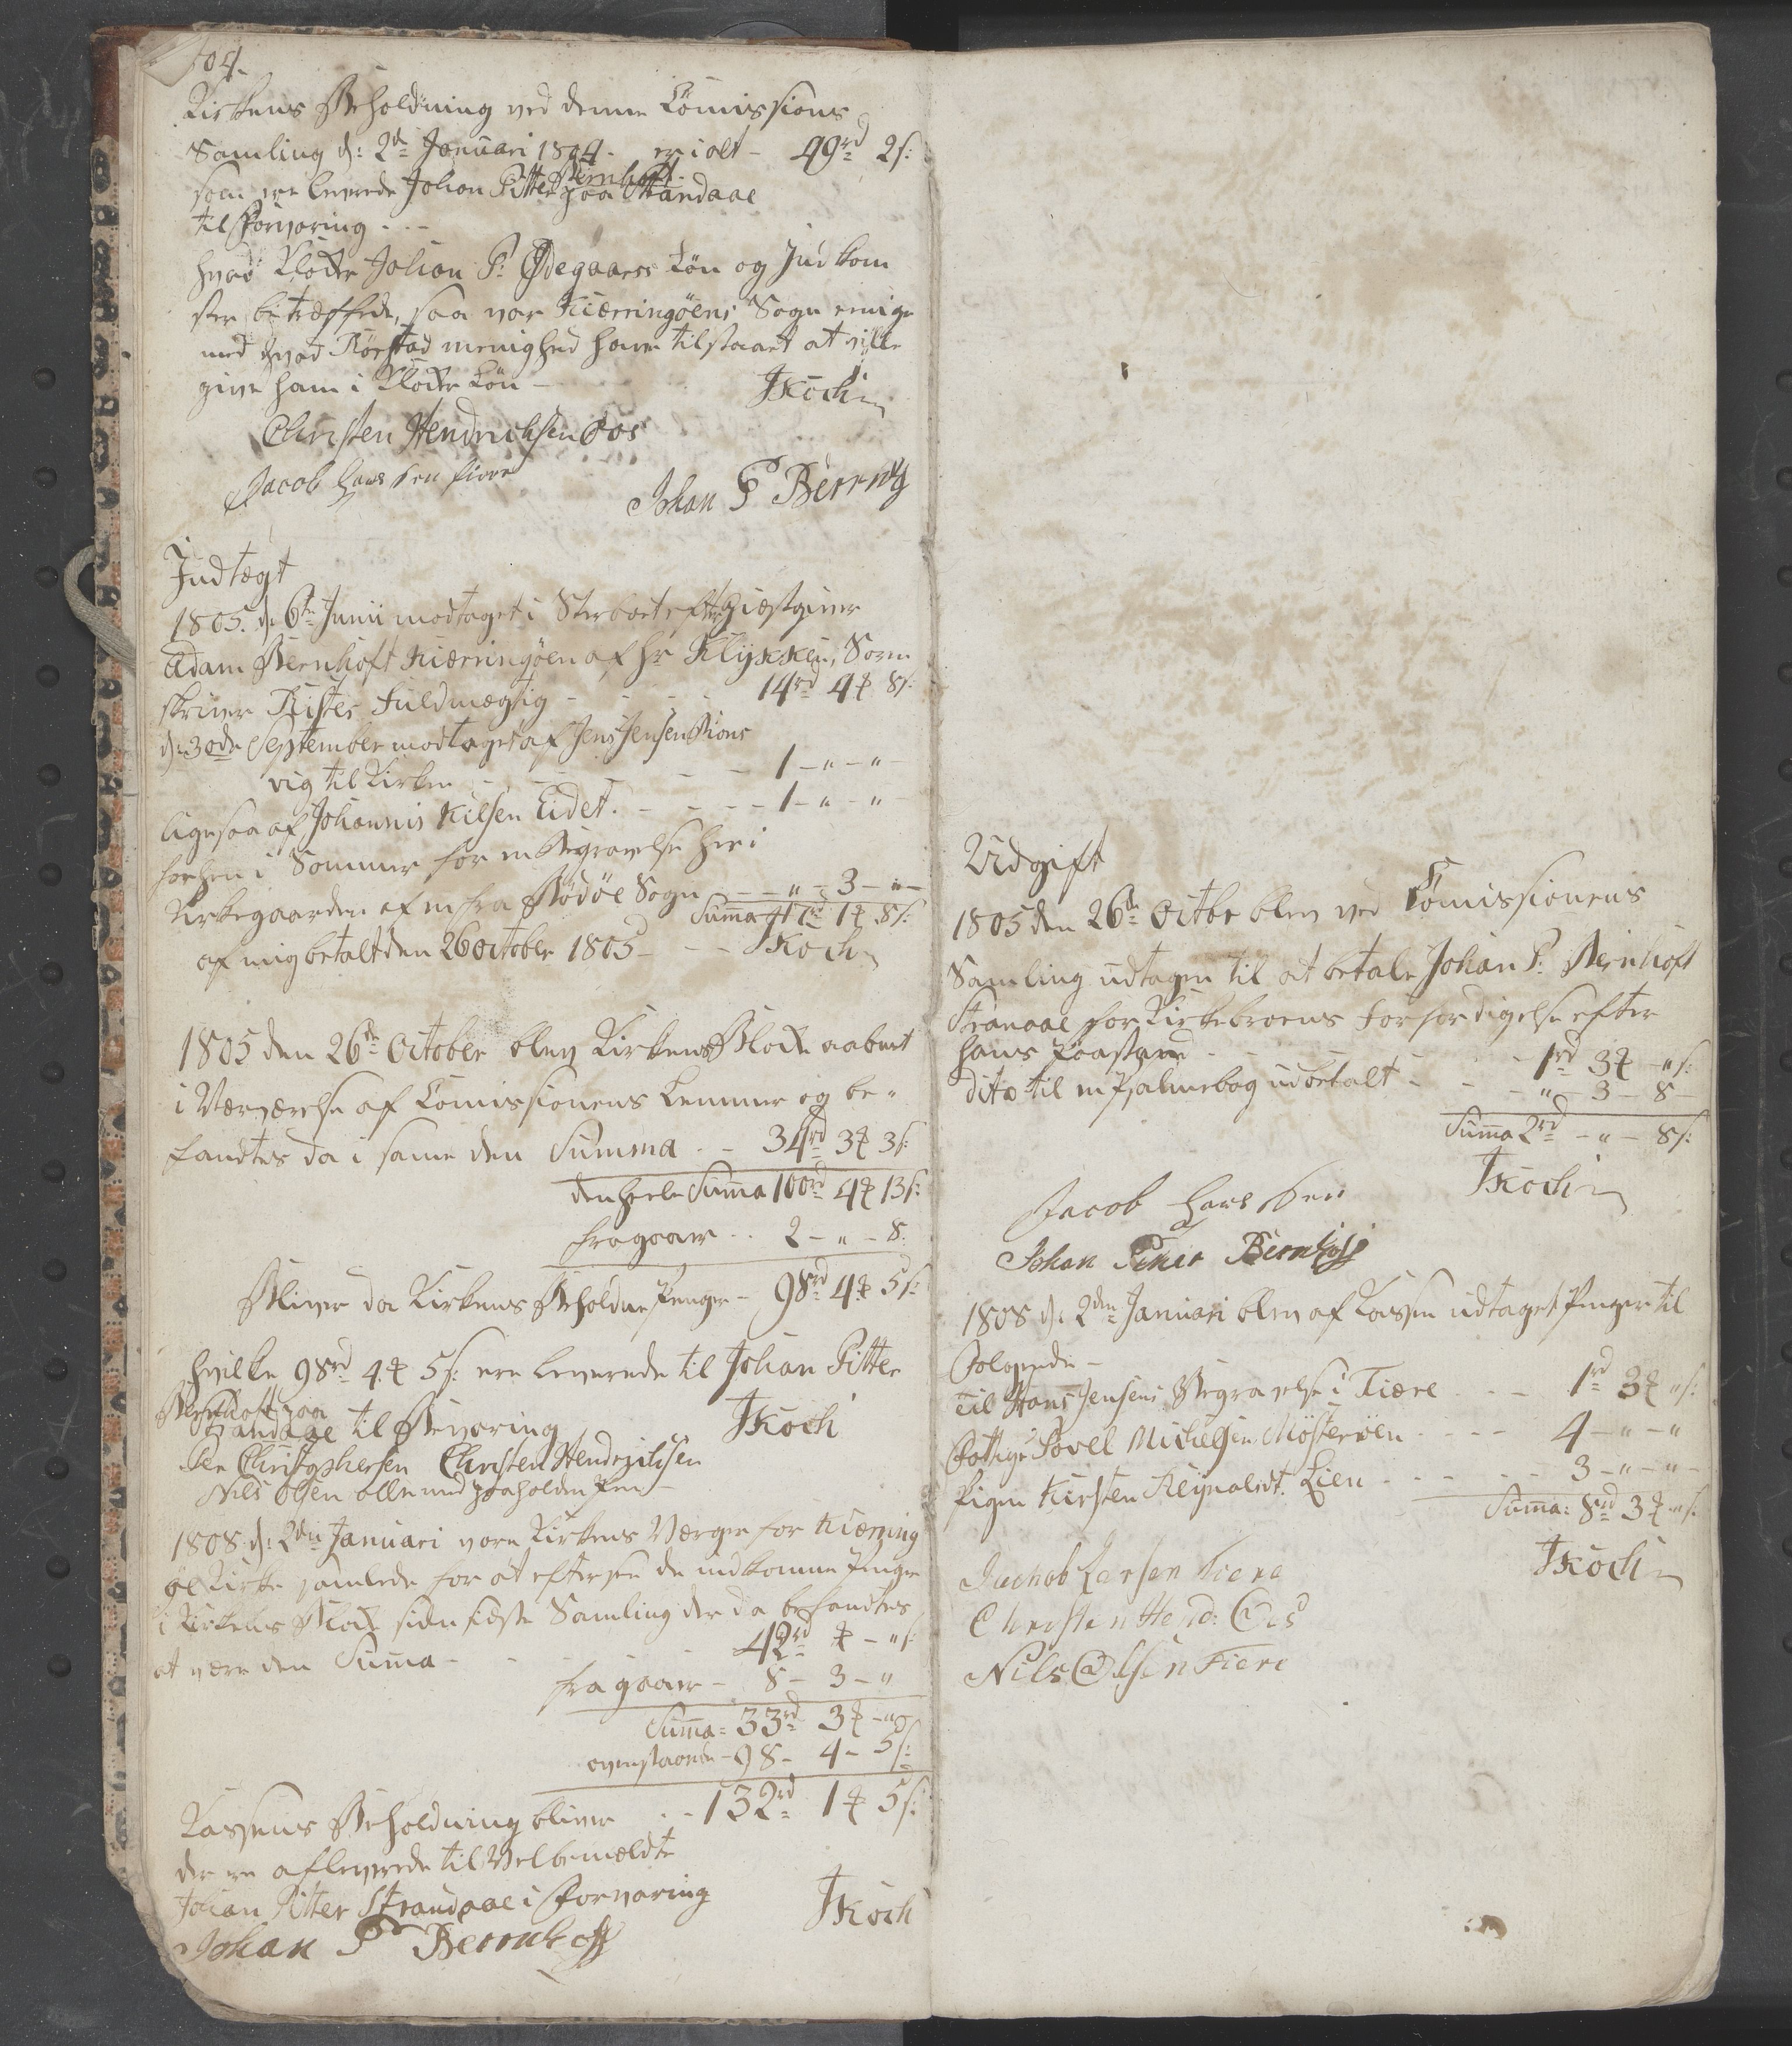 104.
Kirkens Beholdning ved denne Comissions
Samling d: 2de Januari 1804. er i alt - 49rd 2s:
som ere leverede Johan Pitter Bernhoft paa Strandaae
til Forvaring - - -
hvad Klokker Johan P: Ødegaards Løn og Indkom
ster betræffede, saa var Kierringøens Sogn enige
med hvad Rørstad menighed have tilstaaet at ville
give ham i Klokker Løn - JKoch
Christen Hendrichsen Oos
Jacob Hans sen fiere
Johan P Bernh
Indtægt
1805. d. 6te Junii modtaget i Sterboet efter Giestgiver
Adam Bernhoft Kierringøen af Hr Klykken, Soren
skriver Ristes Fuldmægtig - - - 14rd 4 ₻ 8s:
d: 30de September modtaget af Jens Jensen Sions
vig til Kirken - - - 1 - " - "
ligesaa af Johannis Nilsen Eidet. - - - 1 - " - "
forhen i Sommer for en Begravelse her i
Kirkegaarden af en fra Bodøe Sogn - - " - 3 - " -
Summa 17rd 1 ₻ 8s:
af mig betalt den 26 October 1805 - - JKoch
1805 den 26de October blev Kirkens Blok aabnet
i Nærværelse af Comissionens Lemmer og be-
fandtes da i same den Summa - - 34rd 3 ₻ 3s:
den heele Summa 100rd 4 ₻ 13s:
fragaaer - - 2 - " - 8:
Bliver da Kirkens Beholdne Penger - 98rd 4 ₻ 5s:
hvilke 98rd 4 ₻ 5s: ere leverede til Johan Pitter
Bernhoft paa
Strandaae til Bevaring JKoch
Per Christophersen Christen Hendrichsen
Nils Olsen alle med paaholden Pen -
1808 d: 2den Januari vare Kirkens Værger for Kierring
øe Kirke samlede for at eftersee de indkomne Penge
i Kirkens Blok siden sidste Samling der da befandtes
at være den Summa - - - 42rd ₻ - " s:
fragaaer - 8 - 3 - "
Summa = 33rd 3 ₻ - "
ovenstaaende - 98 - 4 - 5s:
Kassens Beholdning bliver - - 132rd 1 ₻ 5s:
der er afleverede til Velbemældte
Johan Pitter Strandaae i Forvaring JKoch
Johan P Bernhoft
Udgift
1805 den 26de Octbr blev ved Comissionens
Samling udtagen til at betale Johan P: Bernhoft
Stranaae for Kirkebroens Forfærdigelse efter
hans Paastand - - - 1rd 3 ₻ " s:
dito til en Psalmebog udbetalt - - - " - 3 - 8 -
Summa 2rd - " - 8s:
JKoch
Jacob Hans sen
Johan Peter Bernhoft
1808 d: 2den Januari blev af Kassen udtaget Penger til
følgende -
til Hans Jensens Begravelse i Fiære - - - 1rd 3 ₻ " s:
Fattige Povel Michelsen Mosterøen - - - - 4 - " - "
Pigen Kirsten Reynaldt. Lien - - - - 3 - " - " -
Summa: 8rd 3 ₻ " s:
JKoch
Jachob Larsen Fiere
Christen Hend: Oes
Nils Olsen Fiere